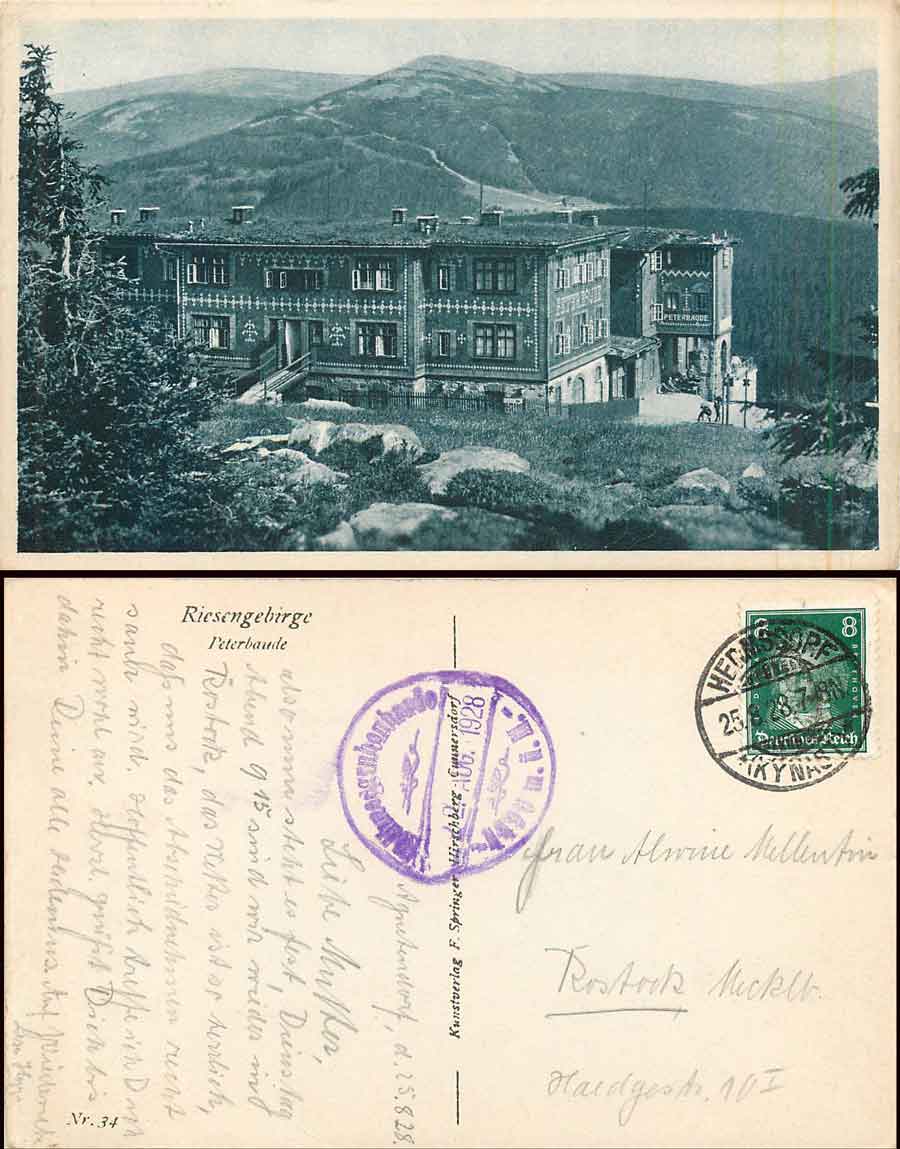 PETERBAUDE
Riesengebirge
Peterbaude
Agnetendorf, d. 25.8.28.
Liebe Mutter,
also nun steht es fest, Dienstag
Abend 9 15 sind wir wieder in
Rostock, das Wetter ist so herrlich,
daß uns das Abschiednehmen recht
sauer wird. Hoffentlich treffe ich Dich
recht wohl an. Herzl. grüßt Dich bis
dahin Deine alle
Nr. 34
Kunstverlag F. Springer Hirschberg-Cunnersdorf
AUG. 1928
8
Deutsches Reich
HERMSDORF
25.8.
(KYNAST)
Frau Alwine Mellentin
Rostock Mecklb.
10 I